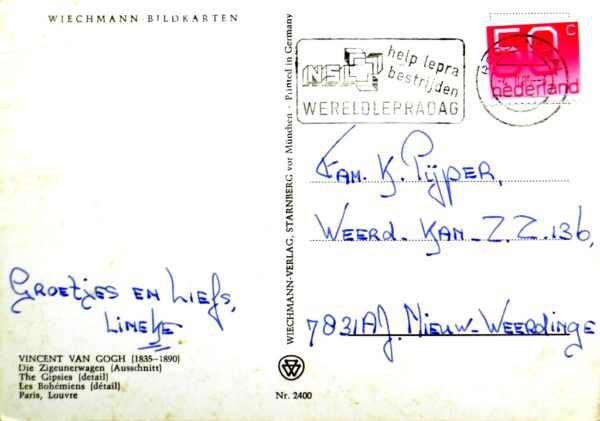 WIECHMANN-BILDKARTEN
INSL
help lepra
bestrijden
WERELDLEPRADAG
50 C
nederland
WIECHMANN-VERLAG, STARNBERG vor München - Printed in Germany
Fam. K. Pijper,
Weerd. Kan. Z.Z. 136,
7831 AJ. Nieuw-Weerdinge
Groetjes en Liefs,
Lineke
VINCENT VAN GOGH (1835-1890)
Die Zigeunerwagen (Ausschnitt)
The Gipsies (detail)
Les Bohémiens (détail)
Paris, Louvre
Nr. 2400